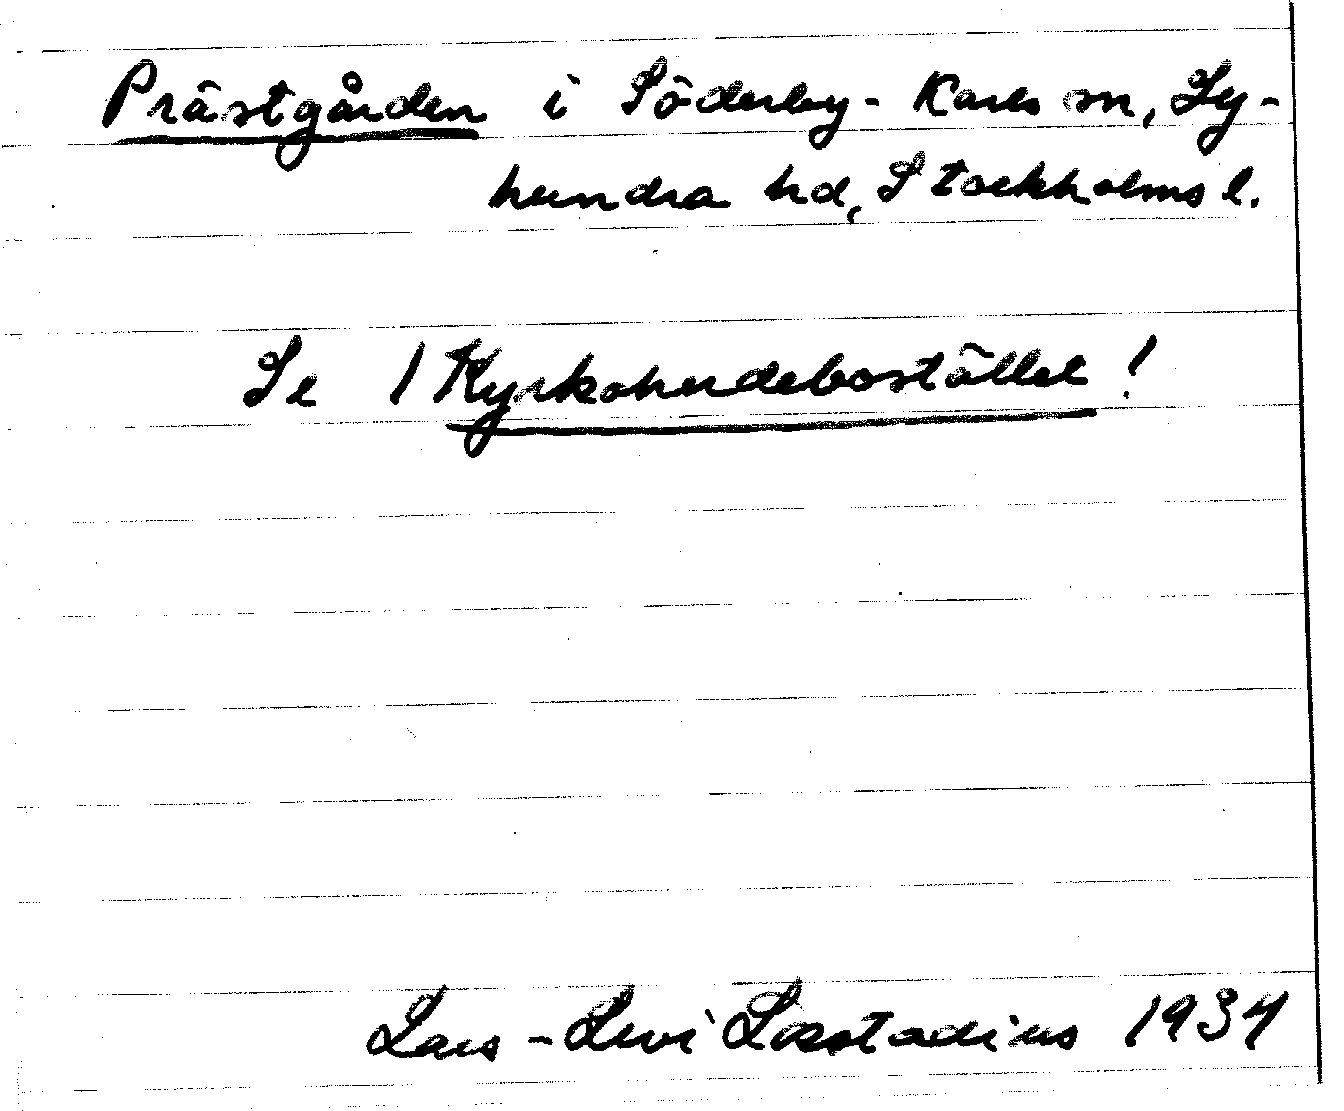 Prästgården i Söderby-Karls sn, Ly-
hundra hd, Stockholms l.
Se ! Kyrkoherdebostället !
Lars-Levi Læstadius 1934